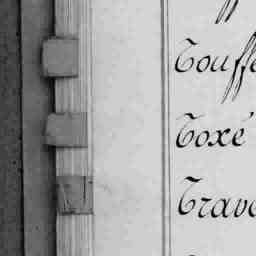 Touffe
Toxé
Trave